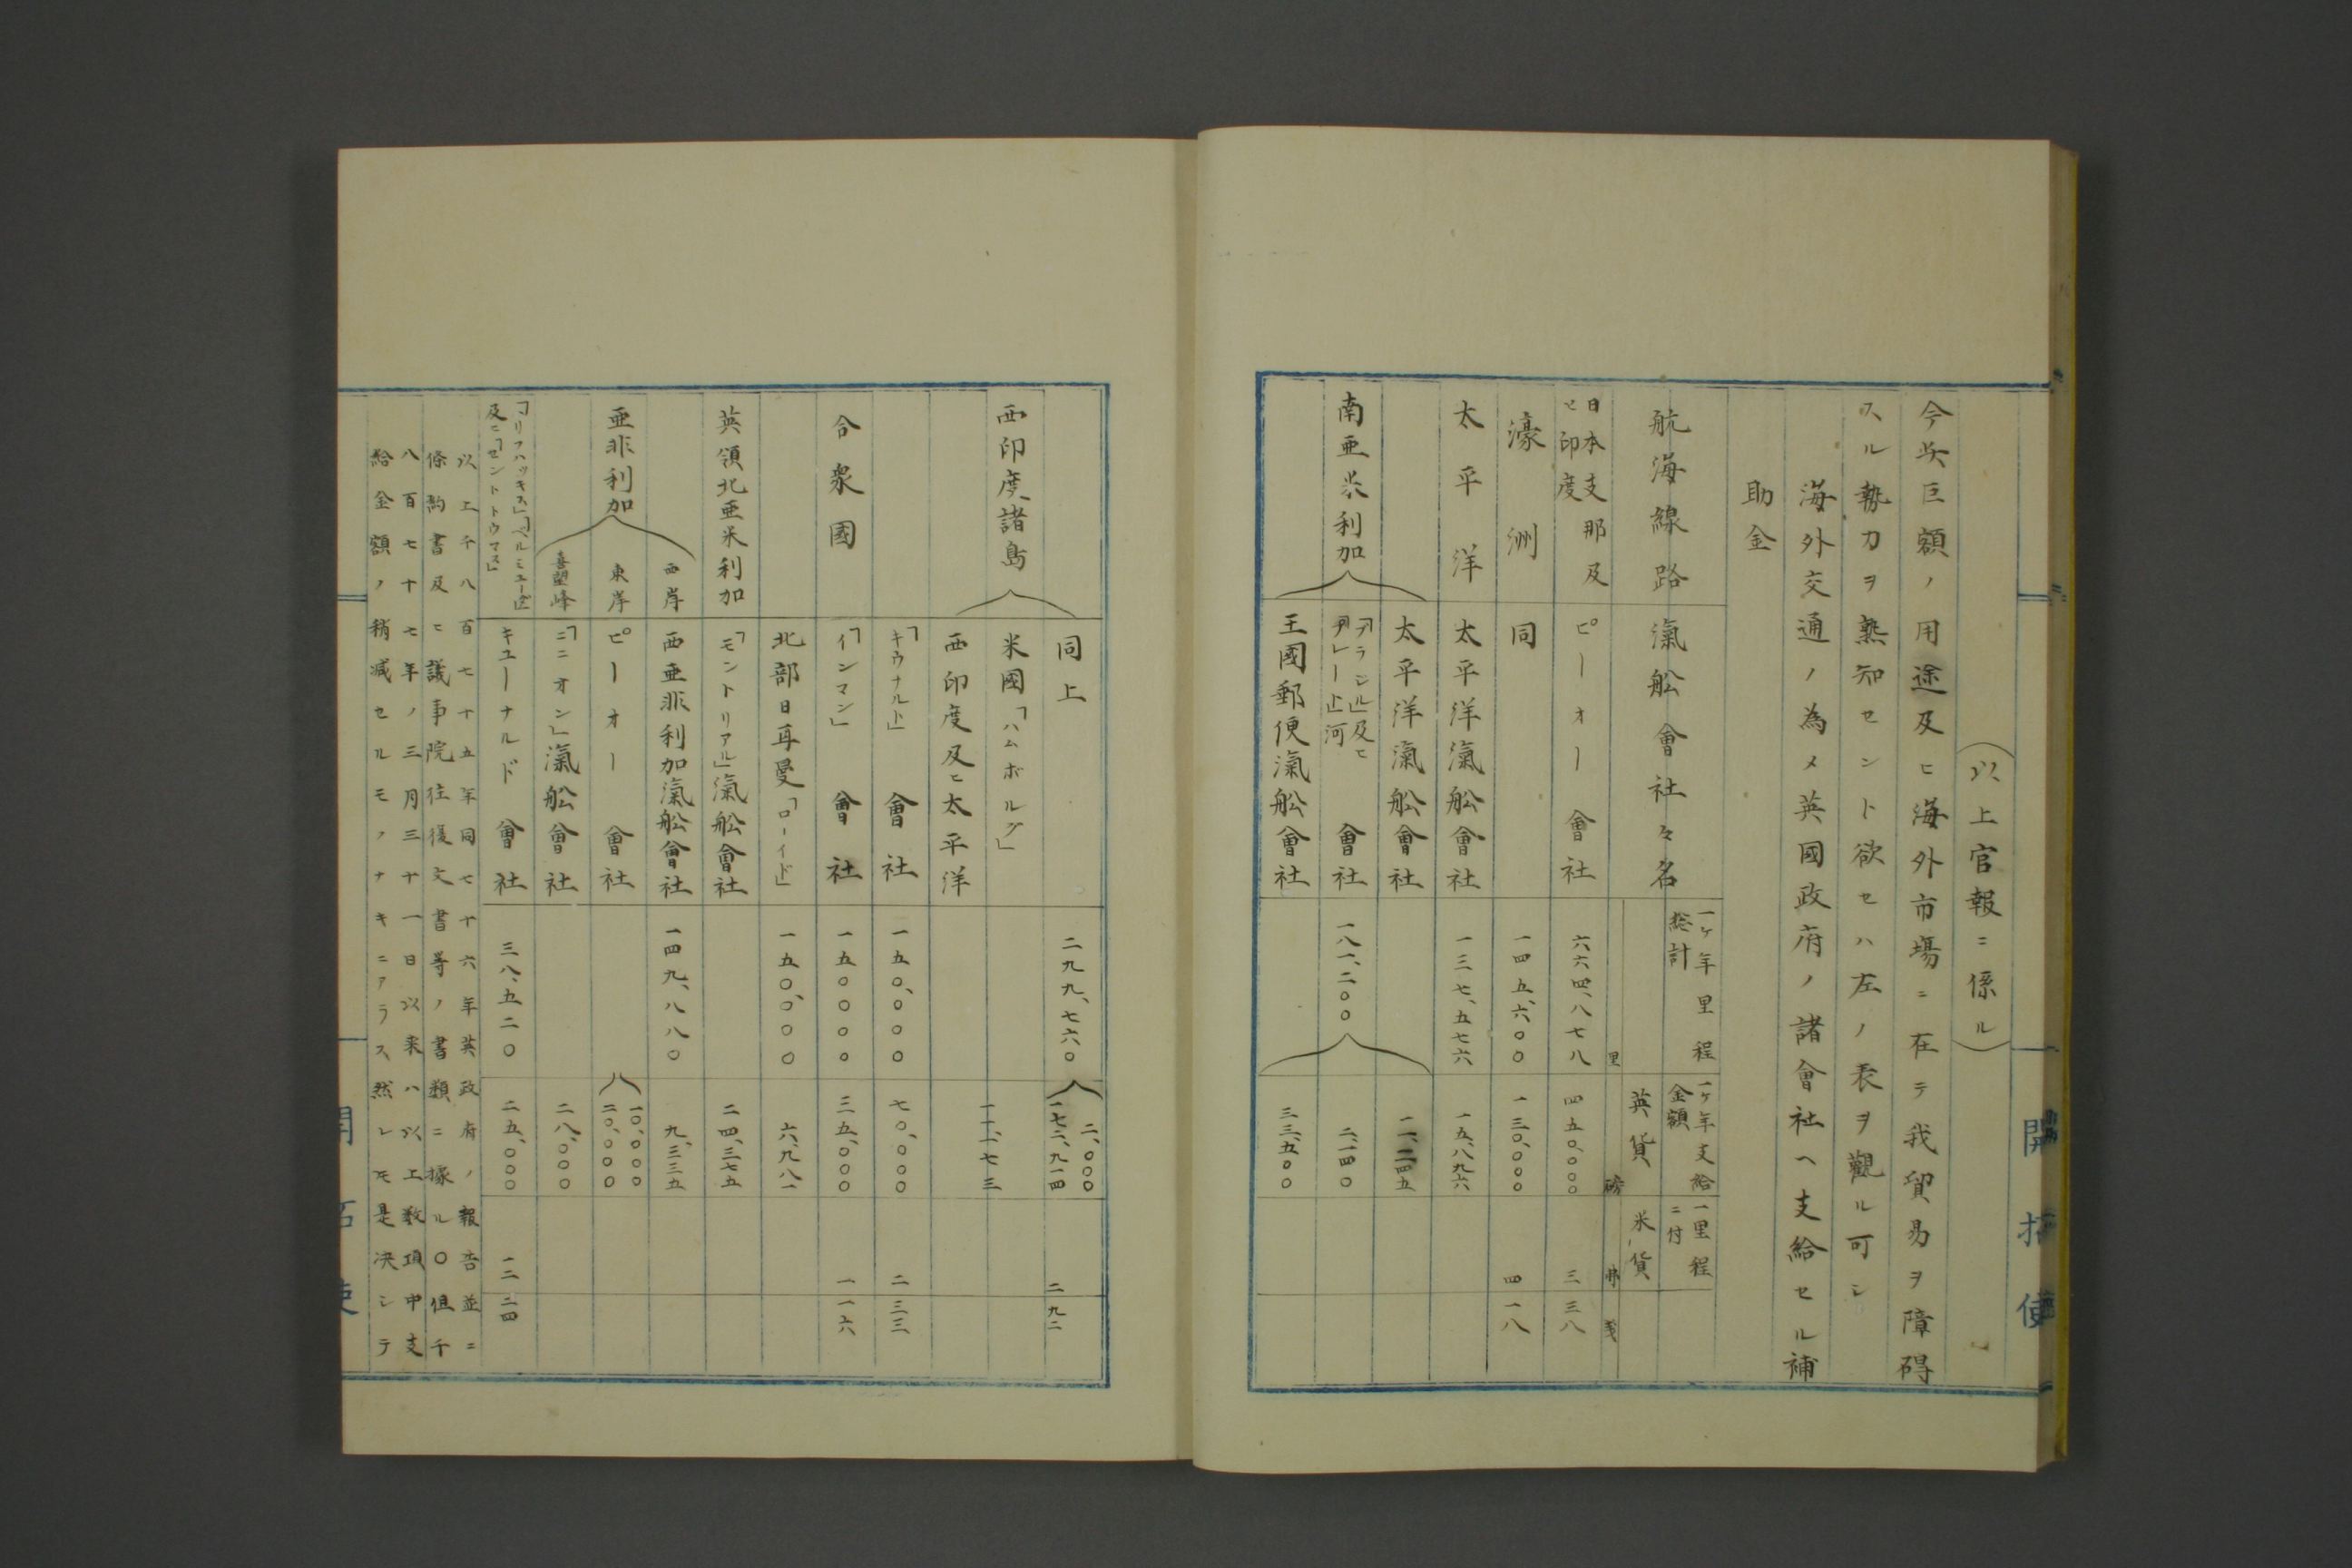 (以上官報ニ係ル)
今此巨額ノ用途及ヒ海外市場ニ在テ我貿易ヲ障碍
スル勢力ヲ熟知セント欲セハ左ノ表ヲ觀ル可シ
海外交通ノ為メ英國政府ノ諸會社ヘ支給セル補
助金
航海線路 滊舩會社々名 一ヶ年里程総計 一ヶ年支給金額 一里程ニ付
里 英貨 磅 米貨 弗 戔
日本支那及ヒ印度 ピーオー會社 六六四、八七八 四五〇、〇〇〇 三 三八
濠洲 同 一四五、六〇〇 一三〇、〇〇〇 四 一八
太平洋 太平洋滊舩會社 一三七、五七六 一五、八九六
太平洋滊舩會社 一一、二四五
南亜米利加 「ブラジル」及ヒ「プレート」河會社 一八一、二〇〇 二、一四〇
王國郵便滊舩會社 三三、五〇〇
同上 二九九、七六〇 二、〇〇〇 一七二、九一四 二 九二
西印度諸島 米國「ハムボルグ」
西印度及ヒ太平洋 一一、七三
「キウナルト」會社 一五〇、〇〇〇 七〇、〇〇〇 二 三三
合衆國 「インマン」會社 一五〇〇〇〇 三五、〇〇〇 一 一六
北部日耳曼「ローイド」 一五〇、〇〇〇 六、九八一
英領北亜米利加 「モントリアル」滊舩會社 二四、三七五
西岸 西亜非利加滊舩會社 一四九、八八〇 九、三三五
亜非利加 東岸 ピーオー會社 一〇、〇〇〇 二〇、〇〇〇
喜望峰 「ユニオン」滊舩會社 二八、〇〇〇
「ハリファッキス」「ベルミューダ」及ヒ「セントトウマス」 キューナルド會社 三八、五二〇 二五、〇〇〇 一二 二四
以上千八百七十五年同七十六年英政府ノ報告並ニ
條約書及ヒ議事院往復文書等ノ書類ニ據ル〇但千
八百七十七年ノ三月三十一日以来ハ以上数項中支
給金額ノ稍減セルモノナキニアラス然レモ是決シテ
開拓使
開拓使